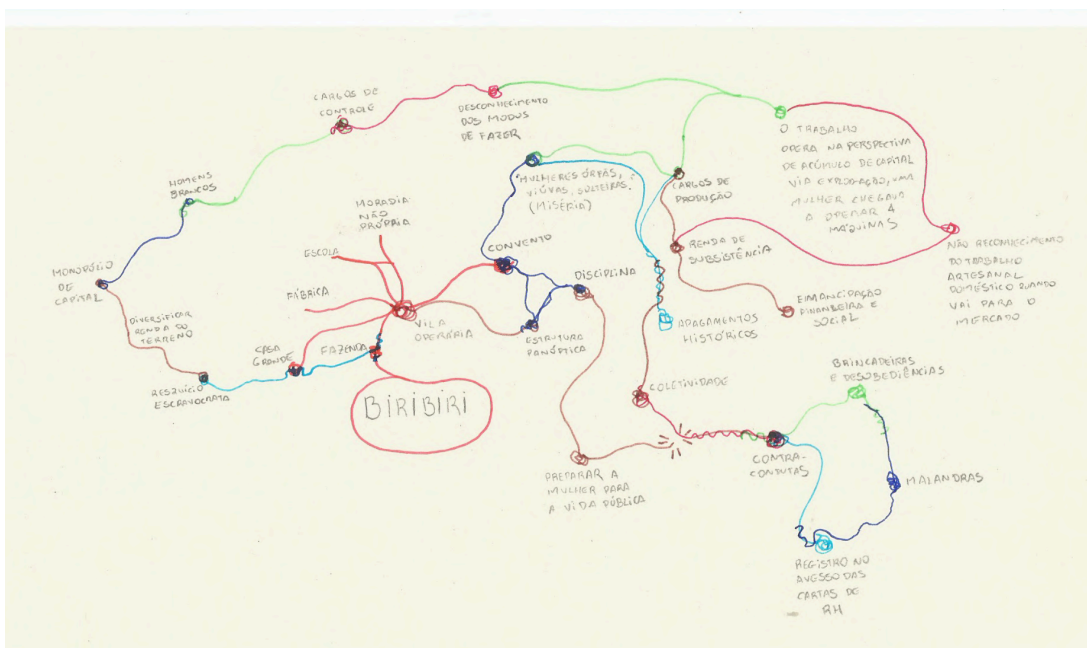 CARGOS DE
CONTROLE
DESCONHECIMENTO
DOS MODUS
DE FAZER
O TRABALHO
OPERA NA PERSPECTIVA
DE ACÚMULO DE CAPITAL
VIA EXPROGAÇÃO, UMA
MULHER CHEGAVA
A OPERAR 4
MÁQUINAS
HOMENS
BRANCOS
MULHERES ÓRFÃS,
VIÚVAS, SOLTEIRAS.
(MISÉRIA)
CARGOS DE
PRODUÇÃO
MORADIA
NÃO
PRÓPRIA
ESCOLA
CONVENTO
RENDA DE
SUBSISTÊNCIA
NÃO RECONHECIMENTO
DO TRABALHO
ARTESANAL
DOMÉSTICO QUANDO
VAI PARA O
MERCADO
MONOPÓLIO
DE
CAPITAL
DISCIPLINA
FÁBRICA
EMANCIPAÇÃO
FINANCEIRA E
SOCIAL
DIVERSIFICAR
RENDA DO
TERRENO
VILA
OPERÁRIA
ESTRUTURA
PANÓPTICA
APAGAMENTOS
HISTÓRICOS
CASA
GRANDE
FAZENDA
RESQUÍCIO
ESCRAVOCRATA
BIRIBIRI
COLETIVIDADE
BRINCADEIRAS
E DESOBEDIÊNCIAS
CONTRA-
CONDUTAS
MALANDRAS
PREPARAR A
MULHER PARA
A VIDA PÚBLICA
REGISTRO NO
AVESSO DAS
CARTAS DE
RH